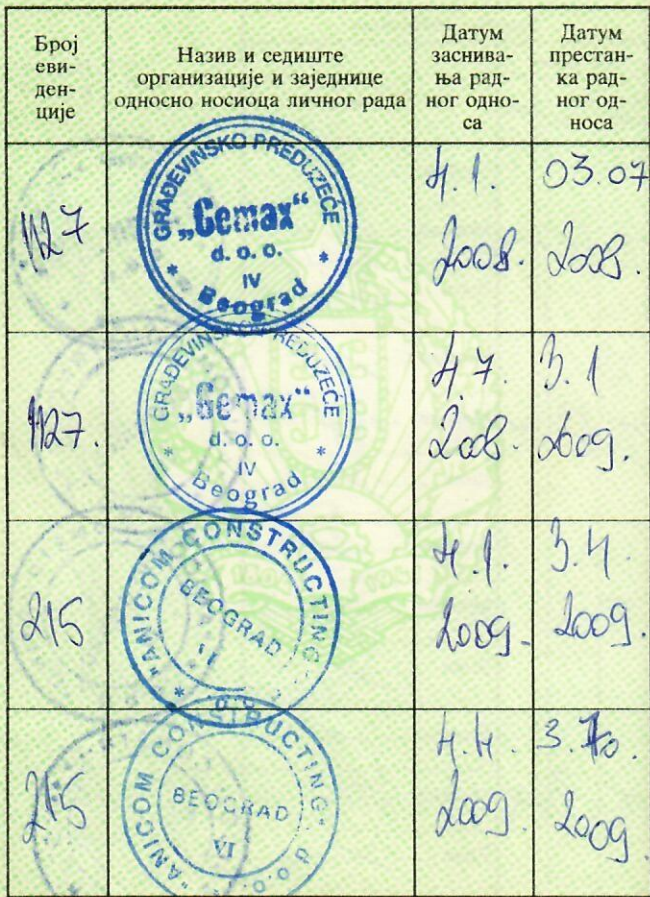 Број
еви-
ден-
ције
Назив и седиште
организације и заједнице
односно носиоца личног рада
Датум
заснива-
ња рад-
ног одно-
са
Датум
престан-
ка рад-
ног од-
носа
1127
GRAĐEVINSKO PREDUZEĆE
„Gemax“
d. o. o.
IV
* Beograd *
4.1.
2008.
03.07
2008.
1127.
GRAĐEVINSKO PREDUZEĆE
„Gemax“
d. o. o.
IV
* Beograd *
4.7.
2008.
3.1
2009.
215
"ANICOM CONSTRUCTING"
BEOGRAD
4.1.
2009.
3.4.
2009.
215
"ANICOM CONSTRUCTING" d.o.o.
BEOGRAD
VI
4.4.
2009.
3.10.
2009